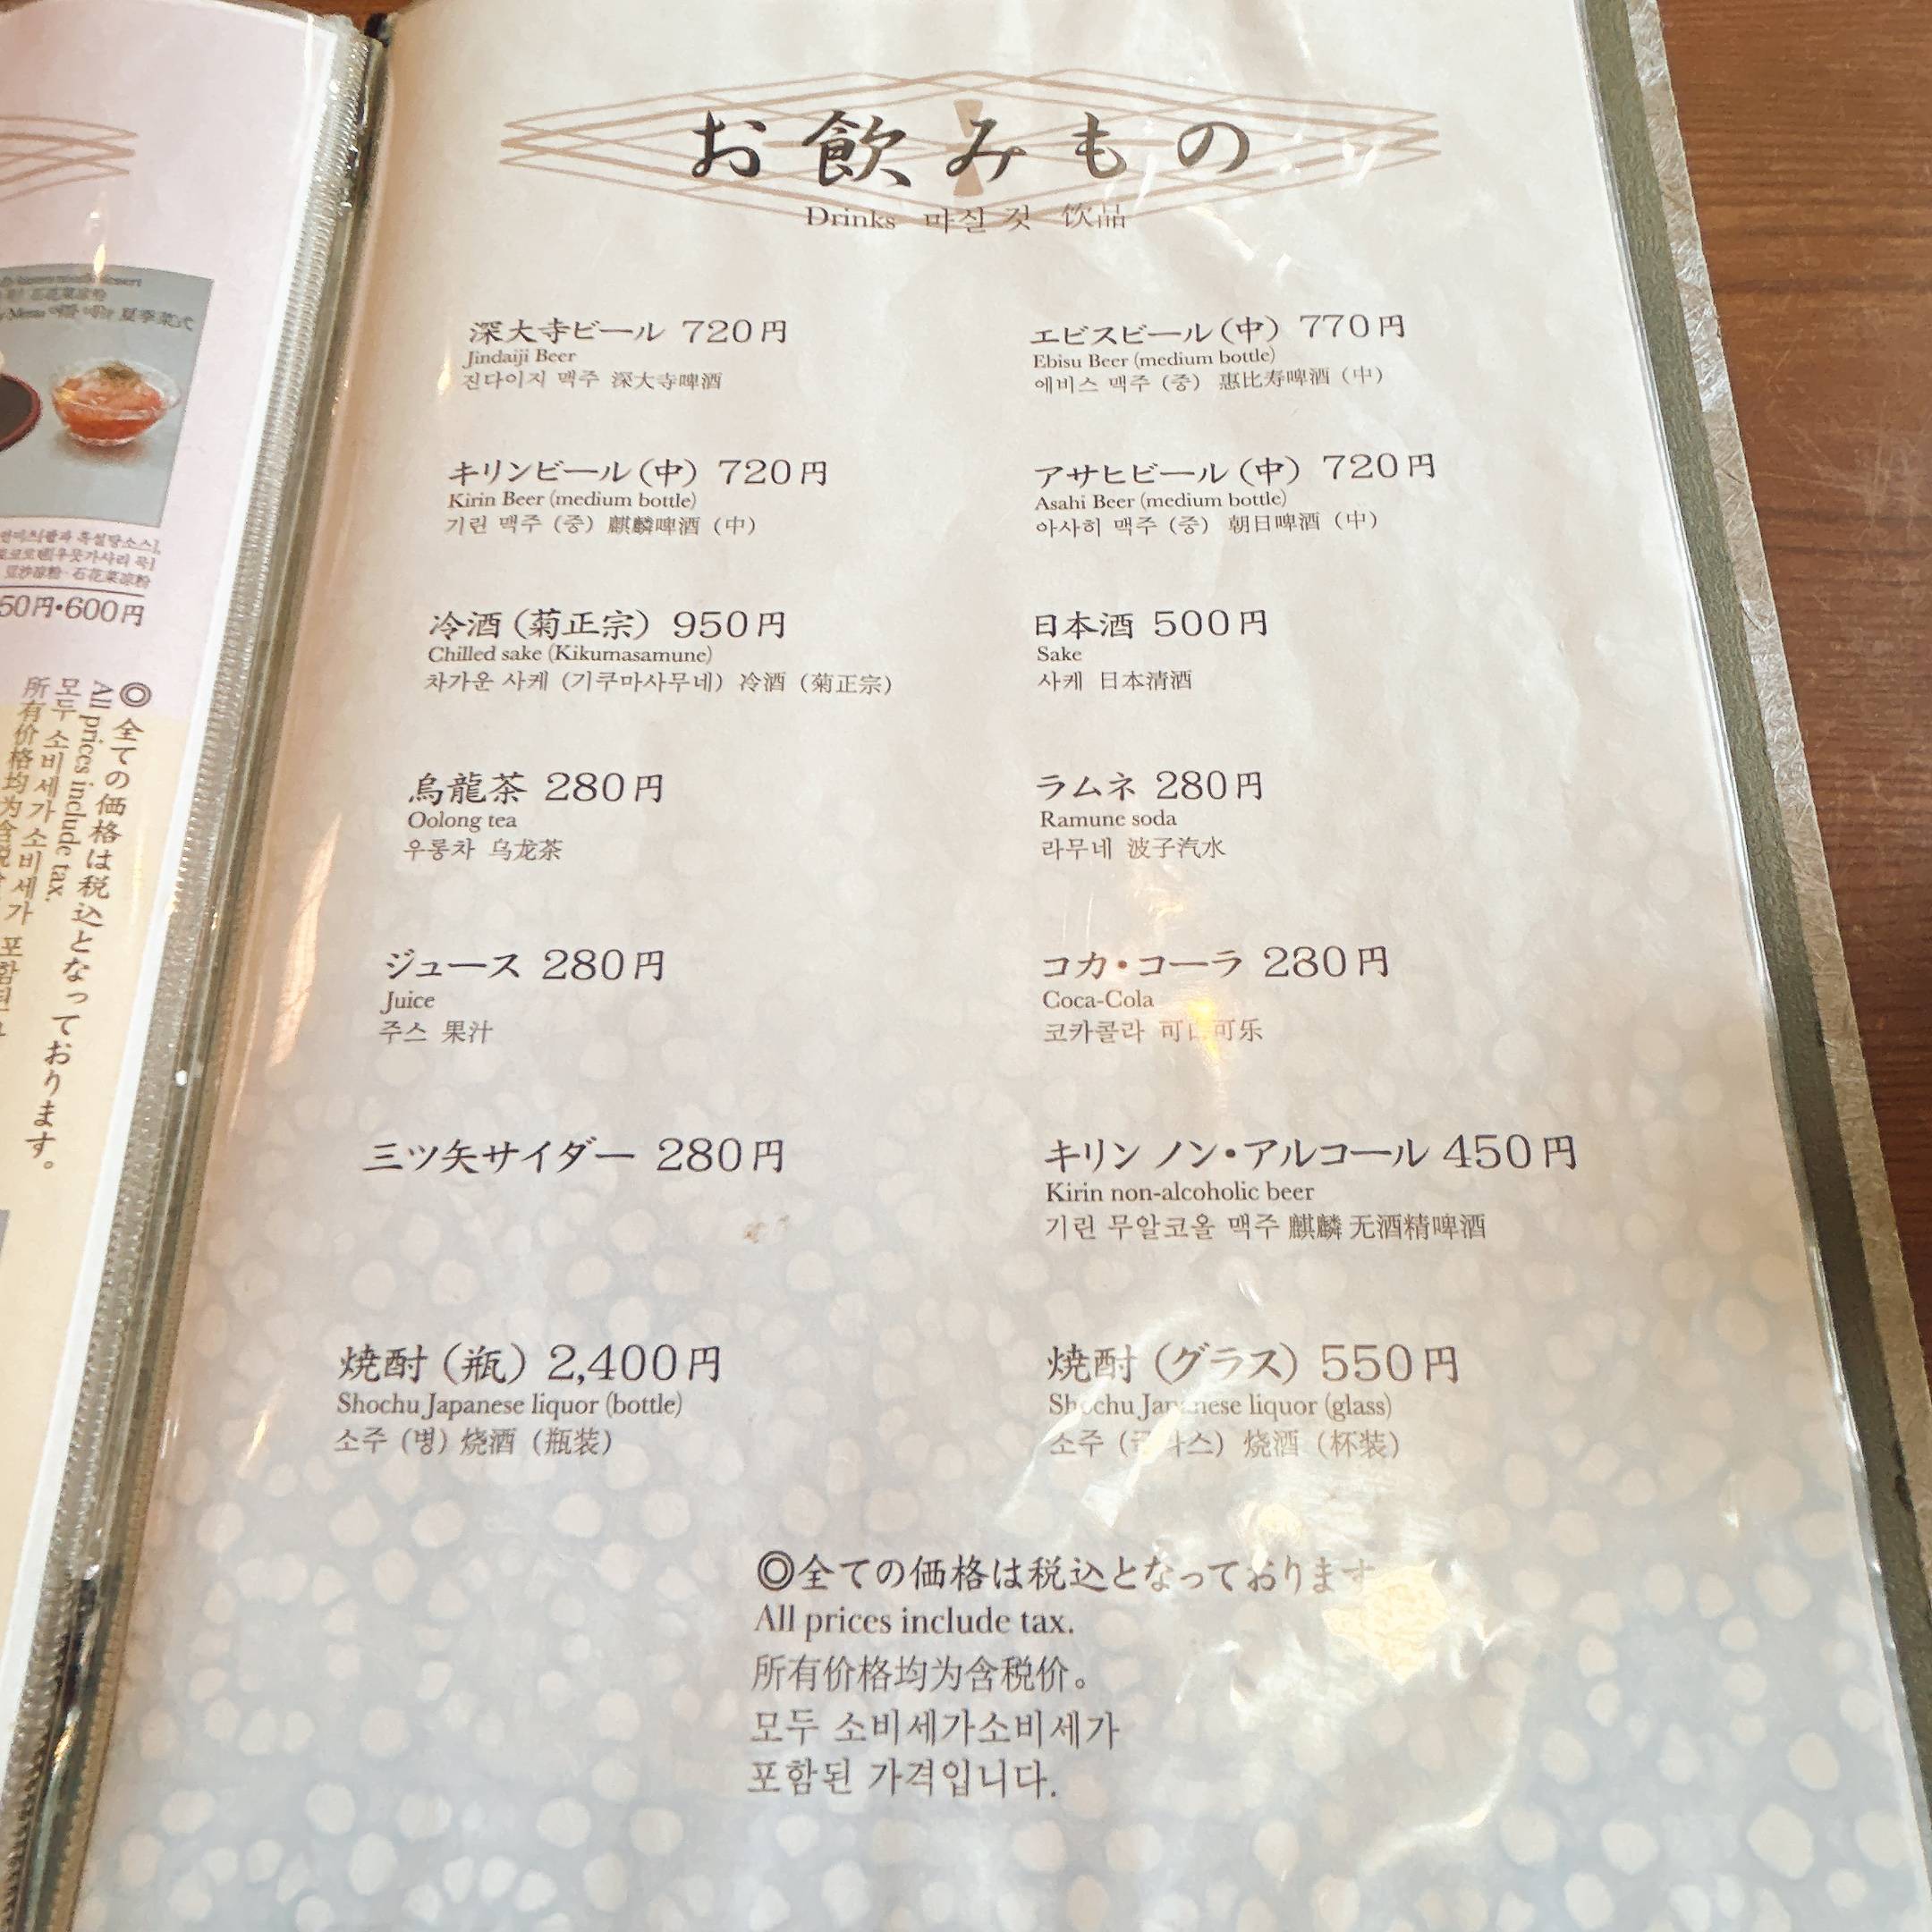 お飲みもの
Drinks 마실 것 饮品
深大寺ビール 720円
Jindaiji Beer
진다이지 맥주 深大寺啤酒
エビスビール(中) 770円
Ebisu Beer (medium bottle)
에비스 맥주 (중) 惠比寿啤酒 (中)
キリンビール(中) 720円
Kirin Beer (medium bottle)
기린 맥주 (중) 麒麟啤酒 (中)
アサヒビール(中) 720円
Asahi Beer (medium bottle)
아사히 맥주 (중) 朝日啤酒 (中)
冷酒(菊正宗) 950円
Chilled sake (Kikumasamune)
차가운 사케 (기쿠마사무네) 冷酒 (菊正宗)
日本酒 500円
Sake
사케 日本清酒
烏龍茶 280円
Oolong tea
우롱차 乌龙茶
ラムネ 280円
Ramune soda
라무네 波子汽水
ジュース 280円
Juice
주스 果汁
コカ・コーラ 280円
Coca-Cola
코카콜라 可口可乐
三ツ矢サイダー 280円
キリン ノン・アルコール 450円
Kirin non-alcoholic beer
기린 무알코올 맥주 麒麟 无酒精啤酒
焼酎(瓶) 2,400円
Shochu Japanese liquor (bottle)
소주 (병) 烧酒 (瓶装)
焼酎(グラス) 550円
Shochu Japanese liquor (glass)
소주 (글라스) 烧酒 (杯装)
◎全ての価格は税込となっております
All prices include tax.
所有价格均为含税价。
모두 소비세가소비세가
포함된 가격입니다.
夏季菜式
豆沙凉粉·石花菜凉粉
50円・600円
◎全ての価格は税込となっております。
All prices include tax.
모두 소비세가소비세가 포함된
所有价格均为含税